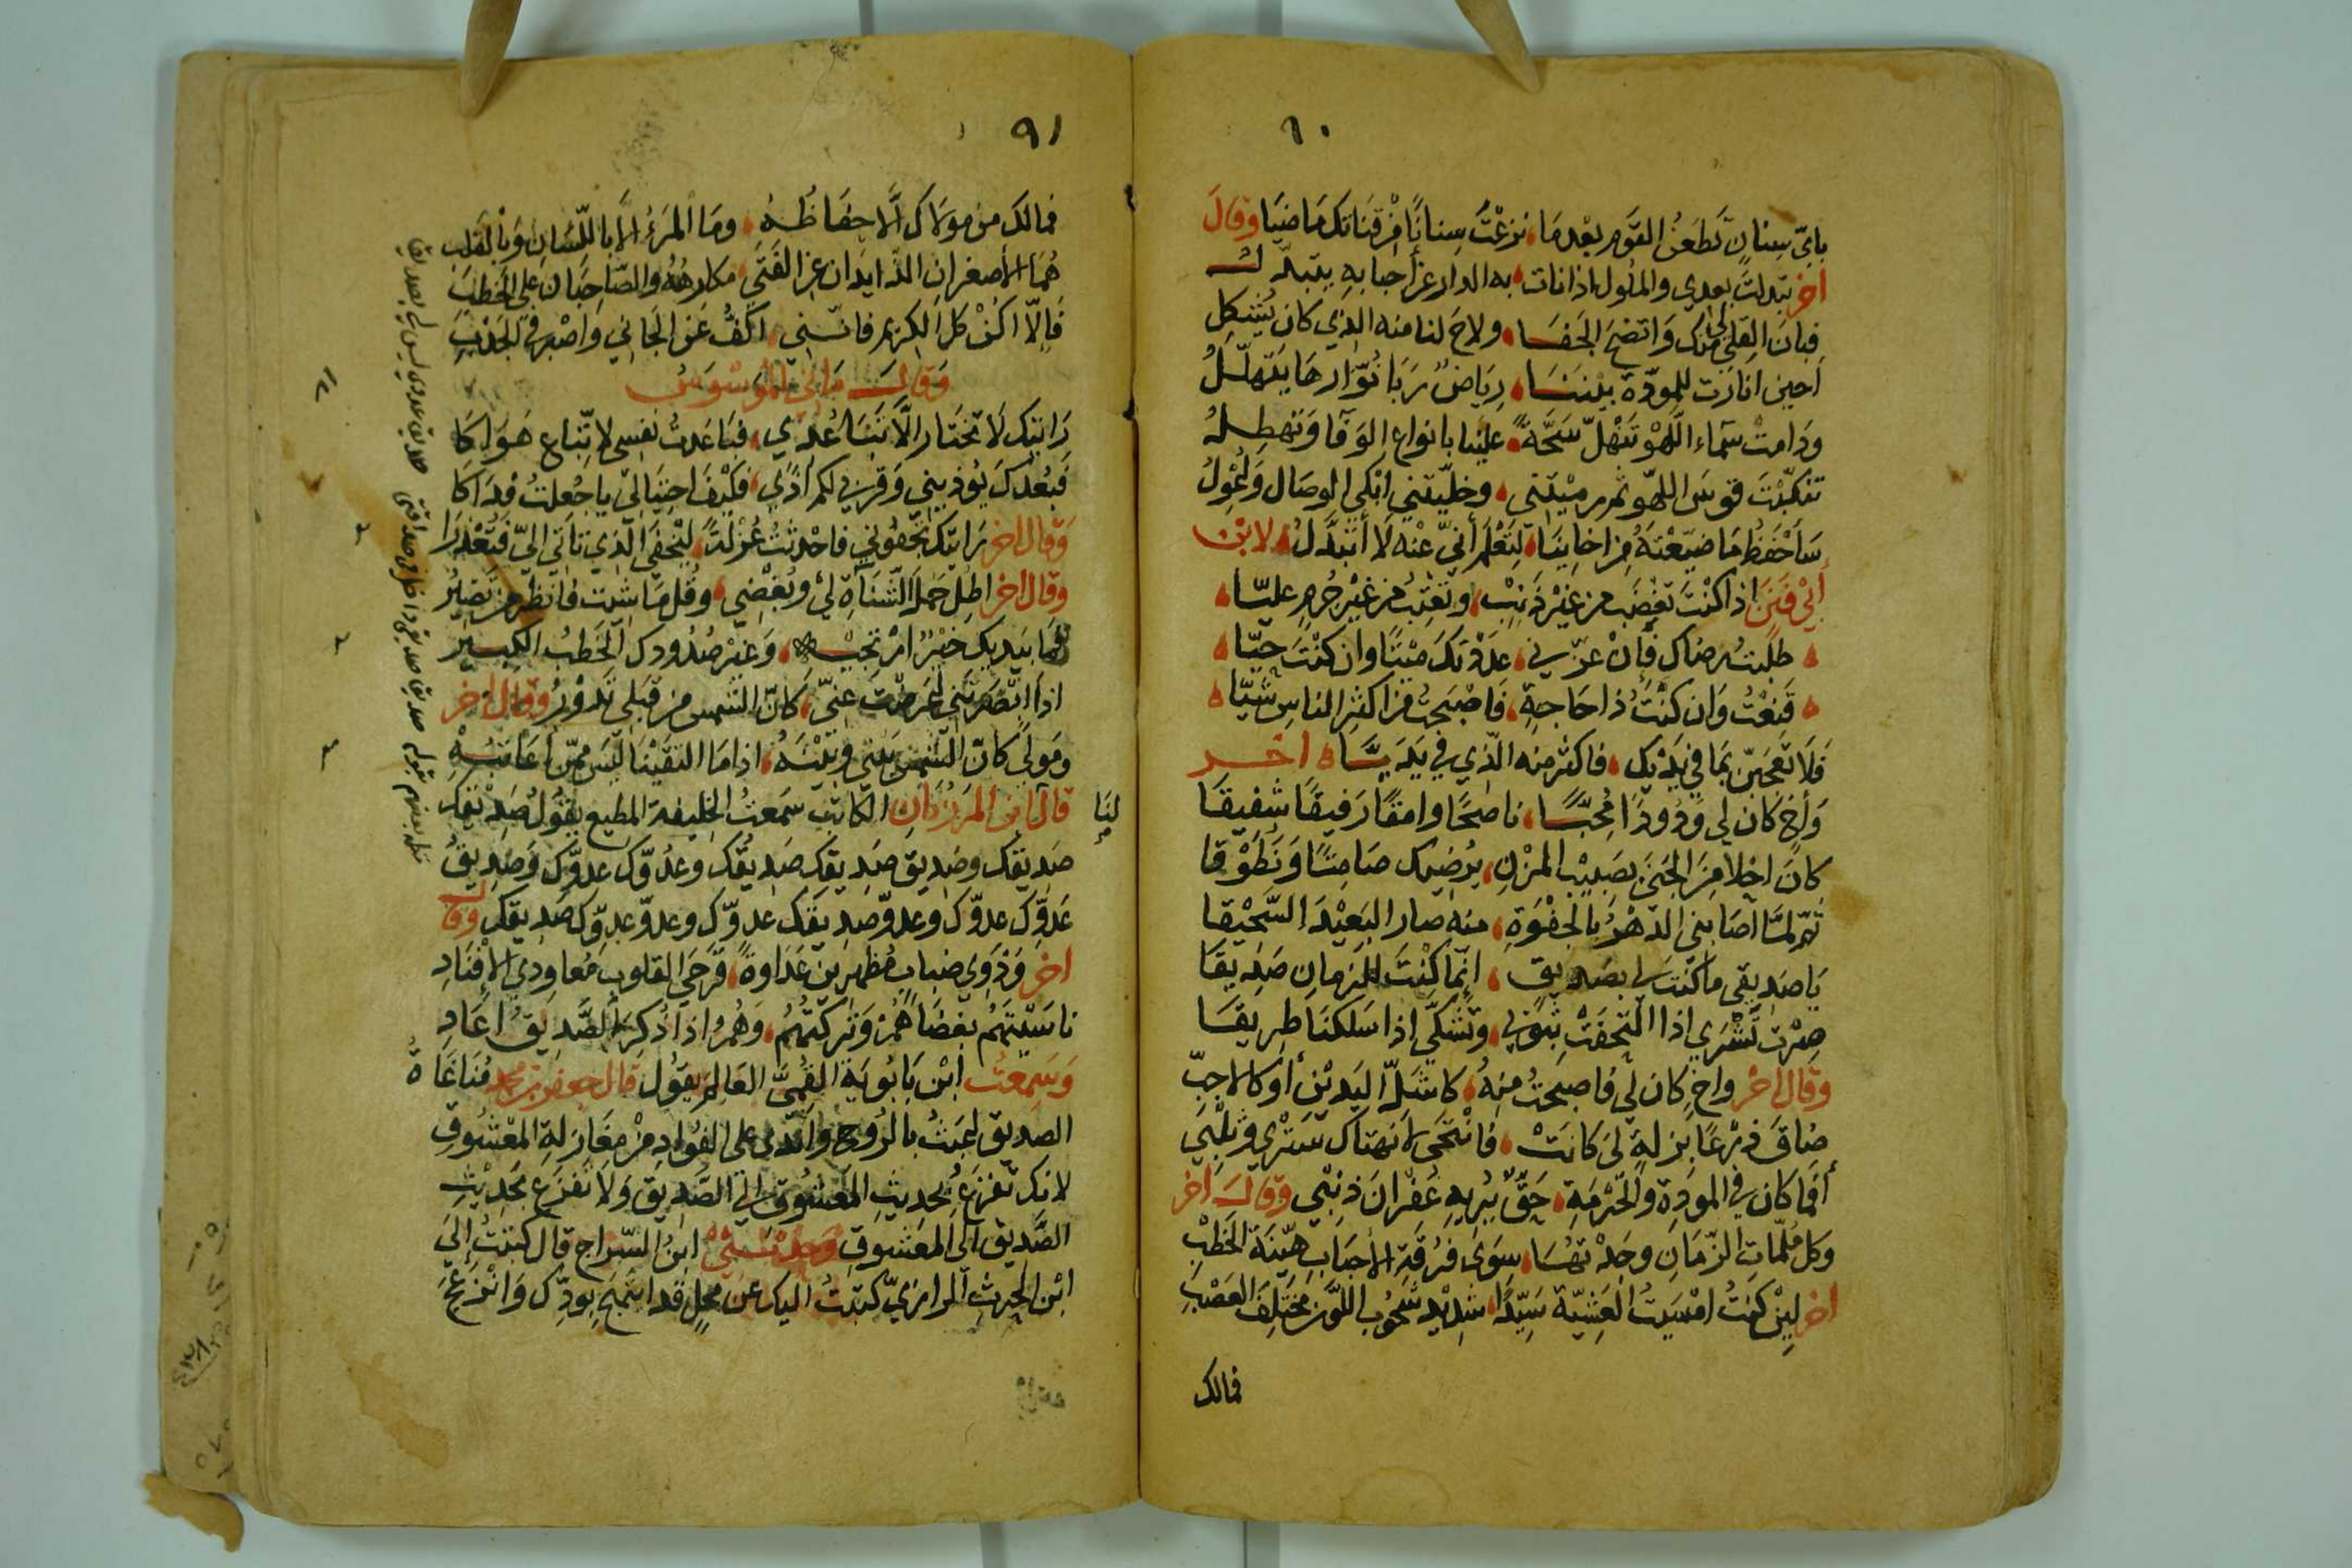 ٩٠
باي سنان تطعن القوم بعدما نزعت سنانا من قناتك ماضيا وقال
اخر تبدلت بعدي والملول اذا نات به الدار عن احبابه يتبدل
فبان القلى منك واتضح الجفا ولاح لنا منه الذي كان يشكل
احين انارت للمودة بيننا رياض ربا نوارها يتهلل
ودامت سماء اللهو تنهل سحة علينا بانواع الوفا وتهطل
تنكبت قوس اللهو ثم رميتني وخليتني ابكي الوصال واعول
ساحفظ ما ضيعته من اخاينا لتعلم أني عنه لا أتبدل لابن
أبي فنن اذا كنت تغضب من غير ذنب وتعتب من غير جرم عليا
طلبت رضاك فإن عزني عددتك ميتا وان كنت حيا
قنعت وان كنت ذا حاجة فاصبحت من اكثر الناس شيا
فلا تعجبن بما في يديك فاكثر منه الذي في يديا اخر
وأخ كان لي ودودا محبا ناصحا وامقا رفيقا شفيقا
كان احلا من الجنى بصبيب المزن يرضيك صامتا ونطوقا
ثم لما اصابني الدهر بالجفوة منه صار البعيد السحيقا
يا صديقي ما كنت لي بصديق انما كنت للزمان صديقا
صرت تشرى اذا التحفت بثوبي وتشكى اذا سلكنا طريقا
وقال اخر واخ كان لي فاصبحت منه كاشل اليدين أو كالاجب
ضاق ذرعا بزلة لى كانت فانتحى لانهتاك ستري وثلبي
أفما كان في المودة والحرمة حق يريه غفران ذنبي وقال اخر
وكل ملمات الزمان وجدتها سوى فرقة الأحباب هينة الخطب
اخر لين كنت امسيت العشية سيدا شديد شحوب اللون مختلف العصب
فمالك
٩١
فمالك من مولاك الا حفاظه وما المرء إلا باللسان وبالقلب
هما الأصغران الذايدان عن الفتى مكارهه والصاحبان على الخطب
فإلا اكن كل الكريم فانني اكف عن الجاني واصبر في الجدب
وقال ماني الموسوس
رايتك لا تختار الا تباعدي فباعدت نفسي لاتباع هواكا
فبعدك يؤذيني وقربي لكم أذي فكيف احتيالي يا جعلت فداكا
وقال اخر رايتك تجفوني فاحدثت عزلة ليخفى الذي تاتي الي فتعذرا
وقال اخر اطل حمل الشناة لي وبغضي وقل ما شيت فانظر من تضير
فما بيديك خير ارتجيه وغير صدودك الخطب الكبير
اذا ابصرتني اعرضت عني كان الشمس من قبلي تدور وقال اخر
ومولى كان الشمس بيني وبينه اذا ما التقينا ليس ممن أعاتبه
لنا
قال ابن المرزبان الكاتب سمعت الخليفة المطيع يقول صديقك
صديقك وصديق صديقك صديقك وعدوك عدوك وصديق
عدوك عدوك وعدو صديقك عدوك وعدو عدوك صديقك وقال
اخر وذوي ضباب مظهرين عداوة قرحى القلوب معاودي الإفناد
ناسيتهم بغضاهم وتركتهم وهم اذا ذكر الصديق اعاد
وسمعت ابن بابويه القمى العالم يقول قال جعفر بن محمد مناغاة
الصديق اعبث بالروح واندى على الفؤاد من مغازلة المعشوق
لانك تفزع بحديث المعشوق الى الصديق ولا تفزع بحديث
الصديق الى المعشوق وحدثني ابن السراج قال كتبت إلى
ابن الحرث الرازي كتبت اليك عن محل قد ابتهج بودك وانزعج